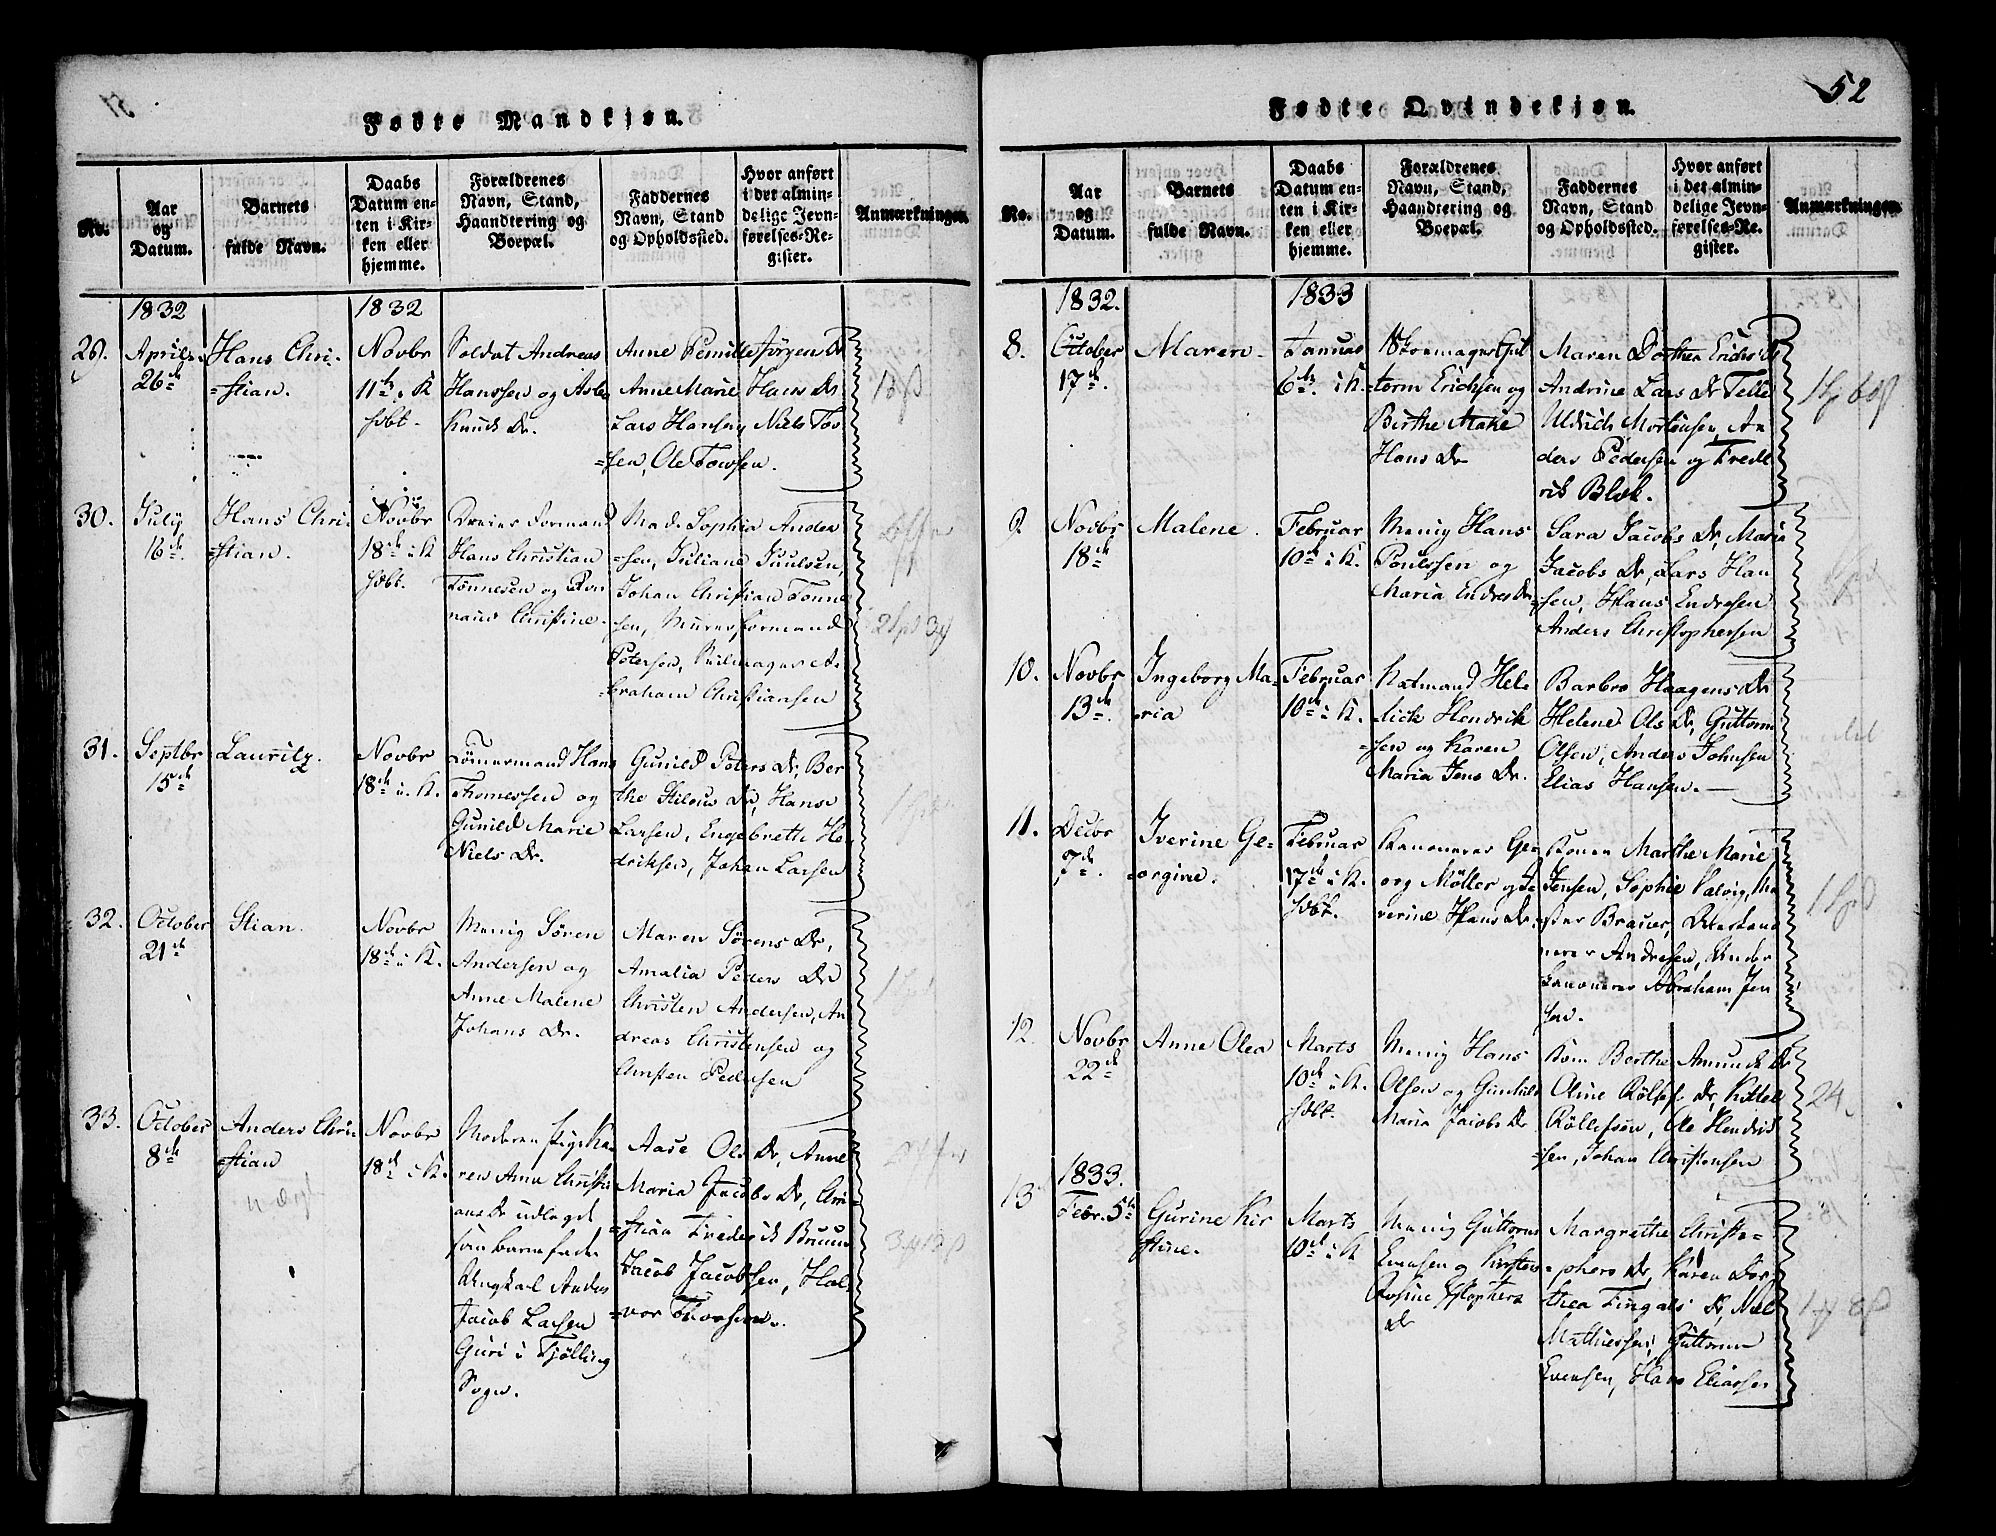 Fødte Mandkjøn.
No.
Aar
og
Datum.
Barnets
fulde Navn.
Daabs
Datum en-
ten i Kir-
ken eller
hjemme.
Forældrenes
Navn, Stand,
Haandtering og
Boepæl.
Faddernes
Navn, Stand
og Opholdssted.
Hvor anført
i det almin-
delige Jevn-
førelses-Re-
gister.
Anmærkninger.
1832
1832
29.
April
26de
Hans Chri-
=stian.
Novbr
11te i K
hbt.
Soldat Andreas
Hanssen og
Knuds Dr.
Anne Pernille Jørgen Dr
Anne Marie Hans Dr
Lars Hansen Niels Tov
=sen, Ole Tovsen.
30.
July
16de
Hans Chri-
=stian.
Novbr
18de i K
hbt.
Dreier Formand
Hans Christian
Tønnesen og
Christine.
Mad. Sophia Ander
=sen, Juliane Juulsen,
Johan Christian Tønne
sen, Murer formand
Petersen, A-
=braham Christiansen
31.
Septbr
15de
Lauritz.
Novbr
18de i K.
Tømmermand Hans
Thomessen og
Gunild Marie
Niels Dr.
Gunild Peters Dr, Ber
the Dr, Hans
Larsen, Engebreth He
driksen, Johan Larsen
32.
October
21de
Stian.
Novbr
18de i K.
Menig Sören
Andersen og
Anne Malene
Johans Dr.
Maren Sørens Dr,
Amalia Peders Dr
Christen Andersen, An
dreas Christensen og
Christen Pedersen
33.
October
8de
Anders Chri-
=stian
Novbr
18de i K.
Moderen Pige Ka-
ren Anne Christi
ans Dr udlagt
som barnefader
Ungkarl Anders
Jacob Larsen
Guri i Tjølling
Sogn.
Aase Ols Dr, Anne
Maria Jacobs Dr, Chri-
=stian Frederik Bruun
Jacob Jacobsen, Hal-
=vor Thorsen.
52
Fødte Qvindekjøn.
No.
Aar
og
Datum.
Barnets
fulde Navn.
Daabs
Datum en-
ten i Kir-
ken eller
hjemme.
Forældrenes
Navn, Stand,
Haandtering og
Boepæl.
Faddernes
Navn, Stand
og Opholdssted.
Hvor anført
i det almin-
delige Jevn-
førelses-Re-
gister.
Anmærkninger.
1832.
1833
8.
October
17de
Maren
Januar
6te i K.
Skoemager Gut
torm Erichsen og
Birthe Marie
Hans Dr
Maren Dorthea Erichs Dr
Andrine Lars Dr
Uldrich Mortensen, An
ders Pedersen og Frede
rik Blok.
9
Novbr
18de
Malene.
Februar
10de i K.
Menig Hans
Poulssen og
Maria Endres Dr
Sara Jacobs Dr, Maria
Jacobs Dr, Lars Han
=sen, Hans Endresen
Anders Christophersen
10.
Novbr
13de
Ingeborg Ma-
=ria
Februar
10de i K.
Hendrik
=sen og Karen
Maria Jens Dr.
Barbro Haagens Dr
Helene Ols Dr, Guttorm
Olsen, Anders Johnsen
Elias Hansen.—
11.
Decbr
7de
Iverine Ge-
=orgine.
Februar
17de i K.
hbt.
Kanoneer Ge-
org Møller og Se-
verine Hans Dr.
Konen Marthe Marie
Jensen, Sophie
Brauer,
Andresen, Under
kanoneer Abraham Jen
sen.
12
Novbr
22de
Anne Olea
Marts
10de i K.
hbt.
Menig Hans
Olsen og Gunhild
Maria Jacobs Dr
Berthe Amunds Dr
Oline Rölfs Dr, Kittel
Röllefsön, Ole Hendrik
=sen, Johan Christensen
24
1833.
13
Febr. 5te
Gurine Kir
stine.
Marts
10de i K
Menig Guttorm
Evensen og Kirsten
Dr
Margrethe Christo=
=phers Dr, Karen Dor-
thea Fingals Dr, Niels
Mathiessen, Guttorm
Evensen, Hans Eliassen